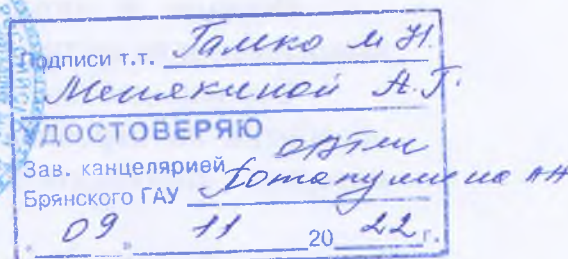 Подписи т.т. Гамко Л Н.
Менякиной А.Г.
УДОСТОВЕРЯЮ
Зав. канцелярией
Брянского ГАУ
"09" 11 2022 г.